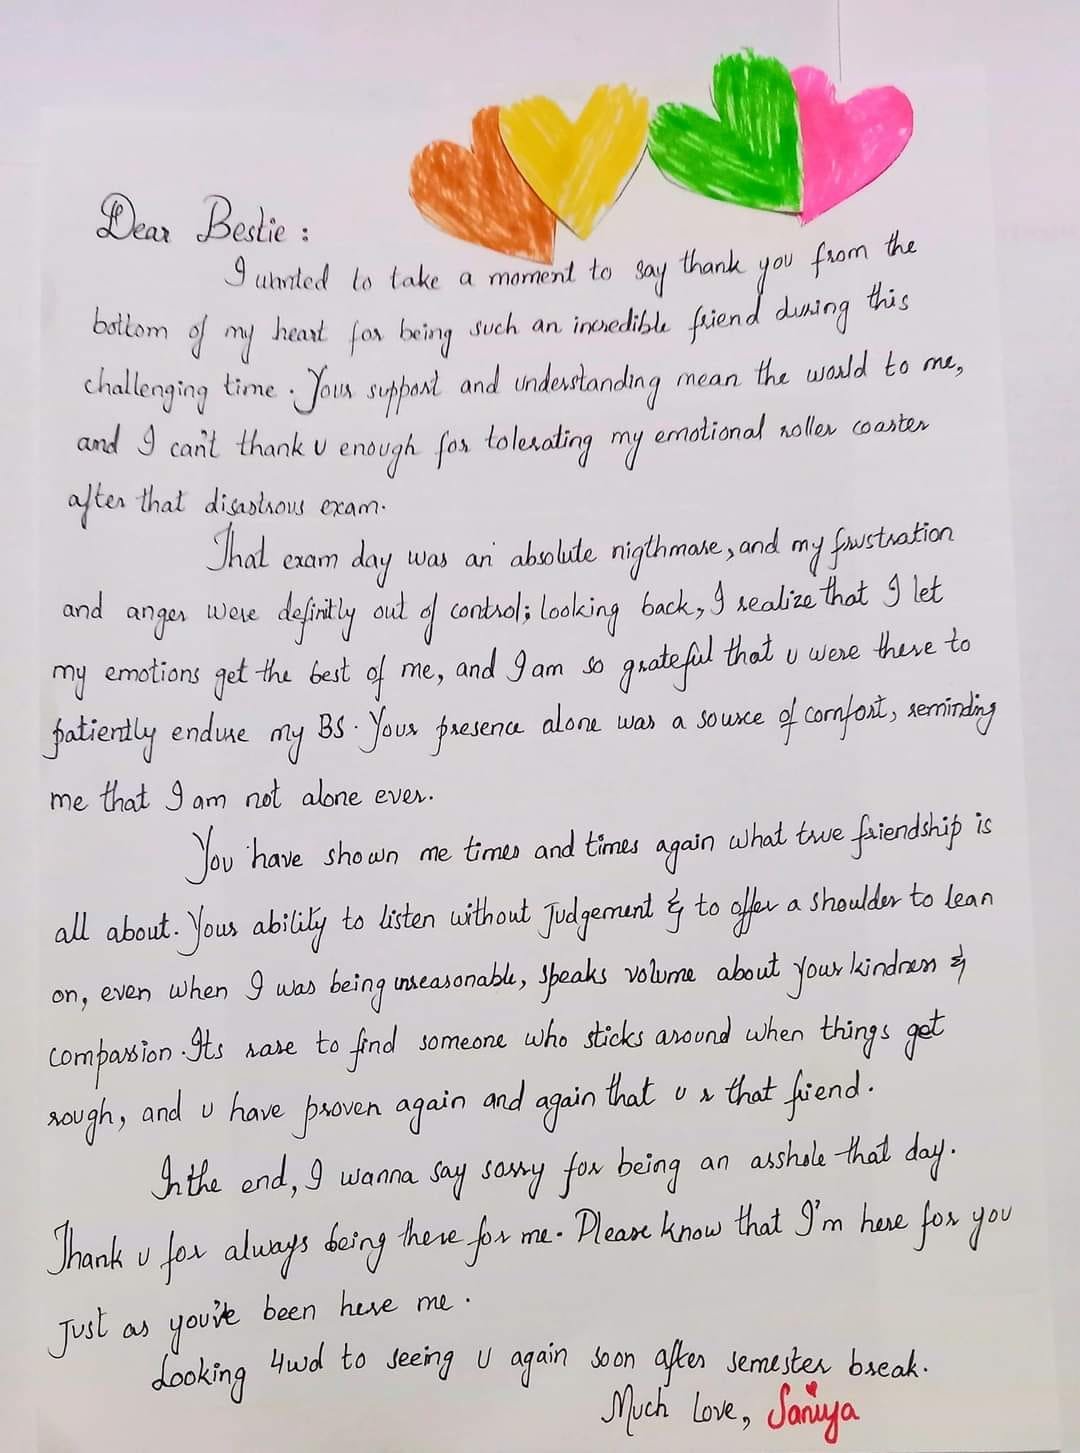 Dear Bestie :
I wanted to take a moment to say thank you from the
bottom of my heart for being such an incredible friend during this
challenging time. Your support and understanding mean the world to me,
and I can't thank u enough for tolerating my emotional roller coaster
after that disastrous exam.
That exam day was an absolute nigthmare, and my frustration
and anger were definitly out of control; looking back, I realize that I let
my emotions get the best of me, and I am so grateful that u were there to
patiently endure my BS. Your presence alone was a source of comfort, reminding
me that I am not alone ever.
You have shown me times and times again what true friendship is
all about. Your ability to listen without Judgement & to offer a shoulder to lean
on, even when I was being unreasonable, speaks volume about your kindness &
compassion. Its rare to find someone who sticks around when things get
rough, and u have proven again and again that u r that friend.
In the end, I wanna say sorry for being an asshole that day.
Thank u for always being there for me. Please know that I'm here for you
Just as you've been here me.
Looking 4wd to seeing u again soon after semester break.
Much Love, Saniya